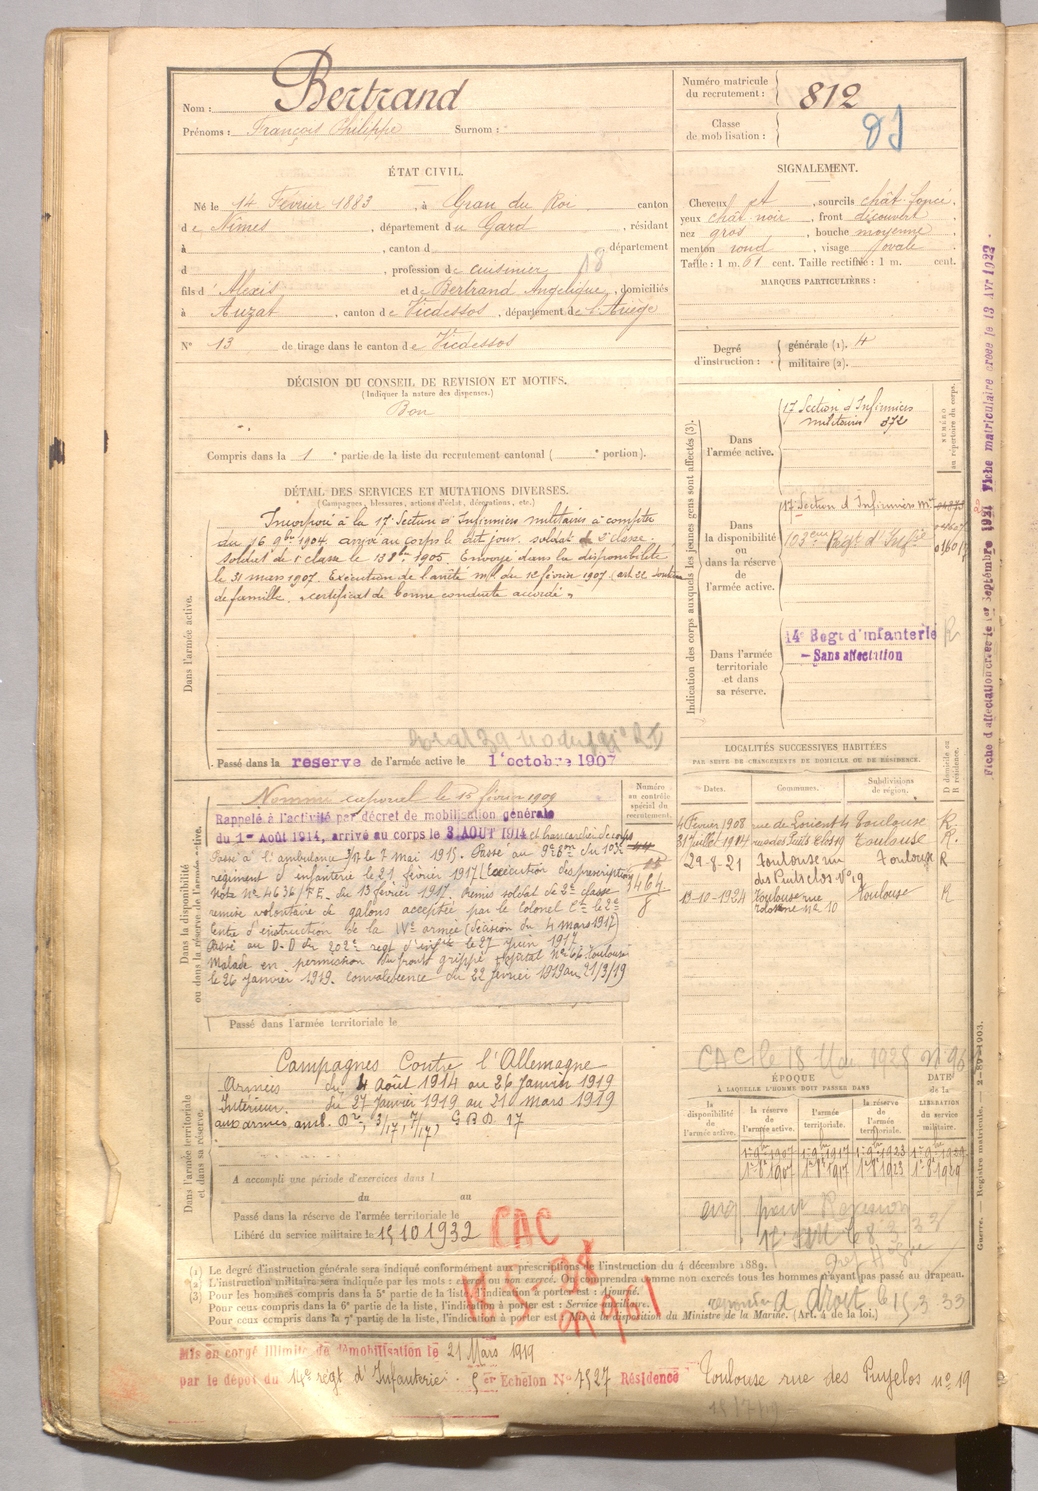 Nom : Bertrand
Prénoms : François Philippe Surnom :
Numéro matricule du recrutement : 812
Classe de mobilisation :
ÉTAT CIVIL.
Né le 14 Février 1883, à Grau du Roi canton
de Nîmes, département du Gard, résidant
à , canton d département
d , profession de cuisinier 18
fils d'Alexis et de Bertrand Angélique, domiciliés
à Auzat, canton de Vicdessos, département de l'Ariège
N° 13 de tirage dans le canton de Vicdessos
SIGNALEMENT.
Cheveux et, sourcils chât. foncé.
yeux chât. noir, front découvert
nez gros, bouche moyenne
menton rond, visage ovale
Taille : 1 m. 61 cent. Taille rectifiée : 1 m. cent.
MARQUES PARTICULIÈRES :
Degré d'instruction : générale (1). 4
militaire (2).
DÉCISION DU CONSEIL DE REVISION ET MOTIFS.
(Indiquer la nature des dispenses.)
Bon
Compris dans la 1e partie de la liste du recrutement cantonal ( e portion).
DÉTAIL DES SERVICES ET MUTATIONS DIVERSES.
(Campagnes, blessures, actions d'éclat, décorations, etc.)
Dans l'armée active.
Incorporé à la 17e Section d'Infirmiers militaires à compter
du 16 9bre 1904. arrivé au corps le dit jour. soldat de 2e classe.
soldat de 1e classe le 13 8bre 1905. Envoyé dans la disponibilité
le 31 mars 1907. Exécution de l'arrêté mel du 12 février 1907 (art 22 soutien
de famille. "certificat de bonne conduite accordé"
Passé dans la reserve de l'armée active le 1er octobre 1907
Indication des corps auxquels les jeunes gens sont affectés (3).
NUMÉRO au répertoire du corps.
Dans l'armée active.
17e Section d'Infirmiers
militaires 872
Dans la disponibilité ou dans la réserve de l'armée active.
17e Section d'Infirmiers mres
103eme Régt d'Infie
Dans l'armée territoriale et dans sa réserve.
14e Regt d'infanterie
- Sans affectation
Fiche d'affectation créée le 1er Septembre 1921 Fiche matriculaire créée le 13 Avr 1922.
Dans la disponibilité ou dans la réserve de l'armée active.
Numéro au contrôle spécial du recrutement.
Nommé caporal le 15 février 1909
Rappelé à l'activité par décret de mobilisation générale
du 1er Août 1914, arrivé au corps le 3 AOUT 1914 et brancardier de corps
Passé à l'ambulance 3/17 le 7 mai 1915. Passé au 9e Bon du 103e
régiment d'infanterie le 21 février 1917 (exécution des prescriptions
Note N° 4636/F.E. du 13 février 1917. Remis soldat de 2e classe
remise volontaire de galons acceptée par le Colonel Ct le 2e
Centre d'instruction de la IVe armée (décision du 4 mars 1917)
Passé au D-D du 202e regt d'infie le 27 Juin 1917
Malade en permission du front grippe Hôpital N° 66 Toulouse
le 26 Janvier 1919. convalescence du 22 février 1919 au 21/3/19
1464
8
Passé dans l'armée territoriale le
LOCALITÉS SUCCESSIVES HABITÉES
PAR SUITE DE CHANGEMENTS DE DOMICILE OU DE RÉSIDENCE.
D domicile ou R résidence.
Dates. Communes. Subdivisions de région.
4 Février 1908 rue de Lorient 4 Toulouse R
31 Juillet 1914 rue des Puits Clos 19 Toulouse R.
29-8-21 Toulouse rue des Puits clos N° 19 Toulouse R
19-10-1924 Toulouse rue Tolosane n° 10 Toulouse R
CAC le 18 Mai 1928 n° 961
Dans l'armée territoriale et dans sa réserve.
Campagnes Contre l'Allemagne
Armées du 4 Août 1914 au 26 Janvier 1919
Intérieur. du 27 Janvier 1919 au 21 mars 1919
aux armées, amb. 3/17, 7/17, GBD 17
A accompli une période d'exercices dans l
du au
Passé dans la réserve de l'armée territoriale le
Libéré du service militaire le 15 10 1932
ÉPOQUE
À LAQUELLE L'HOMME DOIT PASSER DANS
DATE de la LIBÉRATION du service militaire.
la disponibilité de l'armée active. la réserve de l'armée active. l'armée territoriale. la réserve de l'armée territoriale.
1er 9bre 1907 1er 9bre 1917 1er 9bre 1923 1er 9bre 1929
1er 8bre 1907 1er 8bre 1917 1er 8bre 1923 1er 8bre 1929
CAC
18-5-28
n° 961
Guerre. — Registre matricule. — 2-89-1903.
(1) Le degré d'instruction générale sera indiqué conformément aux prescriptions de l'instruction du 4 décembre 1889.
(2) L'instruction militaire sera indiquée par les mots : exercé ou non exercé. On comprendra comme non exercés tous les hommes n'ayant pas passé au drapeau.
(3) Pour les hommes compris dans la 5e partie de la liste, l'indication à porter est : Ajourné.
Pour ceux compris dans la 6e partie de la liste, l'indication à porter est : Service auxiliaire.
Pour ceux compris dans la 7e partie de la liste, l'indication à porter est : Mis à la disposition du Ministre de la Marine. (Art. 4 de la loi.)
Mis en congé illimité de démobilisation le 21 Mars 1919
par le dépôt du 14e régt d'Infanterie Echelon N° 7527 Résidence Toulouse rue des Puyclos n° 19